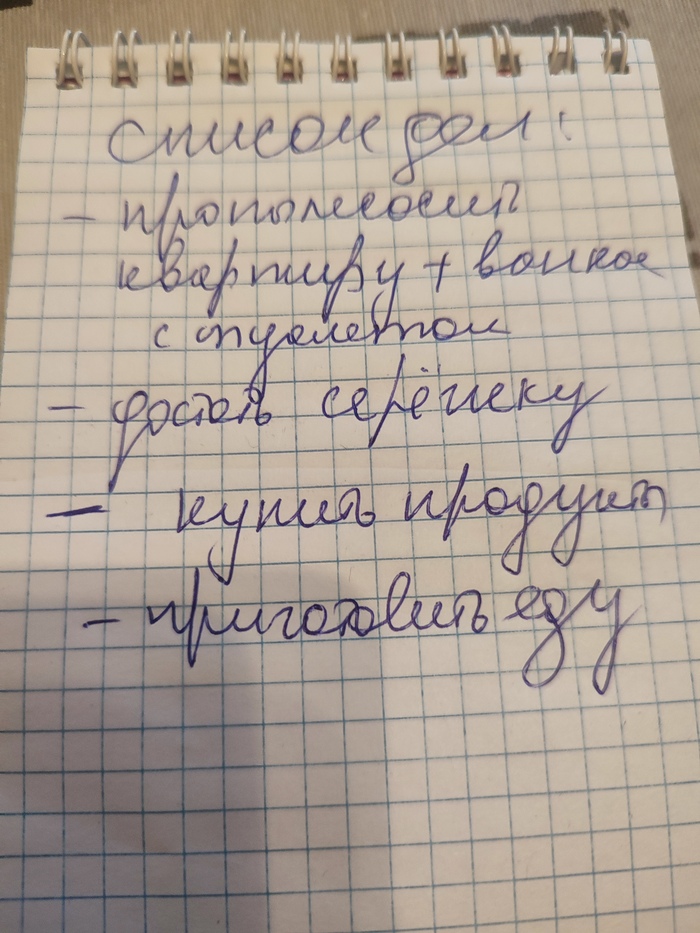 Список дел:
- пропылесосить
квартиру + ванная
с туалетом
- достать серёжку
- купить продукты
- приготовить еду